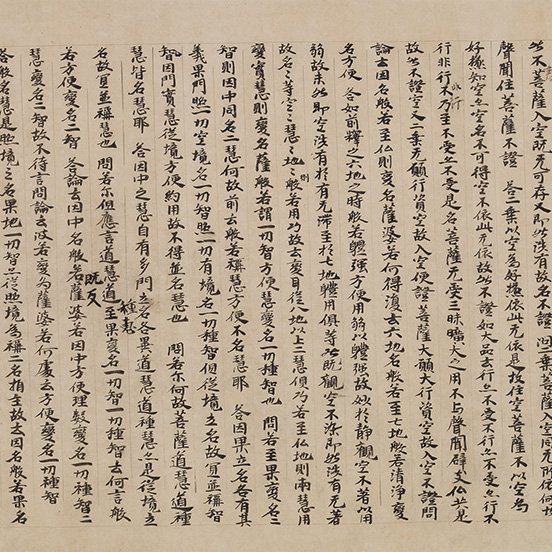 聲聞住菩薩不證 答二乘以空為好據依此无依是故住空菩薩不以空為
好據知空亦空名不可得空不依此无依故以不證如大品云行亦不受不行亦不受行不
行非行不乃至不受亦不受是名菩薩无受三昧曠大之用不与聲聞辟支仏共是
故必不證空又二乘无願行資空故入空便證菩薩大願大行資空故入空不證問
論云因名般若至仏則變名薩婆若何得復云六地名般若至七地般若清淨變
名方便 答如前釋之六地之時般若體強方便用弱以體強故妙於靜觀空不著以用
弱故未能即空涉有於有无滞至於七地體用俱等以既觀空不染即能涉有无著
故名之等空之慧之地之則般若用巧故云變耳從八地以上二慧俱巧若至仏地則兩慧用
變實慧則變名薩般若謂一切智方便慧變名一切種智也 問若至果變名二
智則因中同名二慧何故前云般若稱慧方便不名慧耶 答因果立名各有其
義果門照一切空境名一切智照一切有境名一切種智但從境立名故宜並稱智
智因門實慧從境方便約用故不得並名慧也 問若尒何故菩薩道慧道種
慧皆名慧耶 答因中之慧自有多門立名各果道慧道種慧亦是從境立
名故宜並稱慧也 問若尒但應言道慧道種慧至果變名一切智一切種智云何言般
若方便變名二智 答論云因中名般若薩婆若因中方便理數變名一切種智二
慧變名二智故不待言問論云波若變為薩婆若何處云方便變名一切種智
答般若名慧是照境之名果地一切智亦從照境為稱二名相主故云因名般若果名